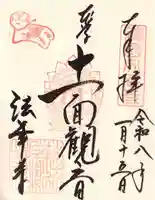 奉拝
令和八年
一月十五日
十一面観音
法華寺